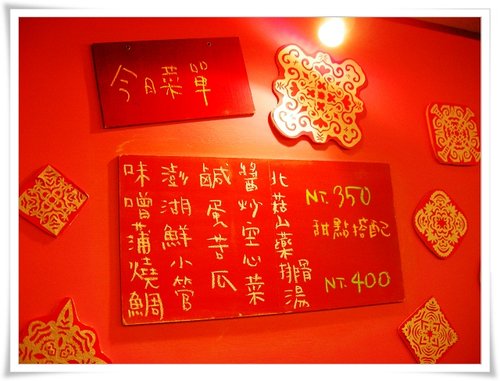 今日菜單
味噌蒲燒鯛
澎湖鮮小管
鹹蛋苦瓜
醬炒空心菜
北菇山藥排骨湯
NT.350
甜點搭配
NT.400